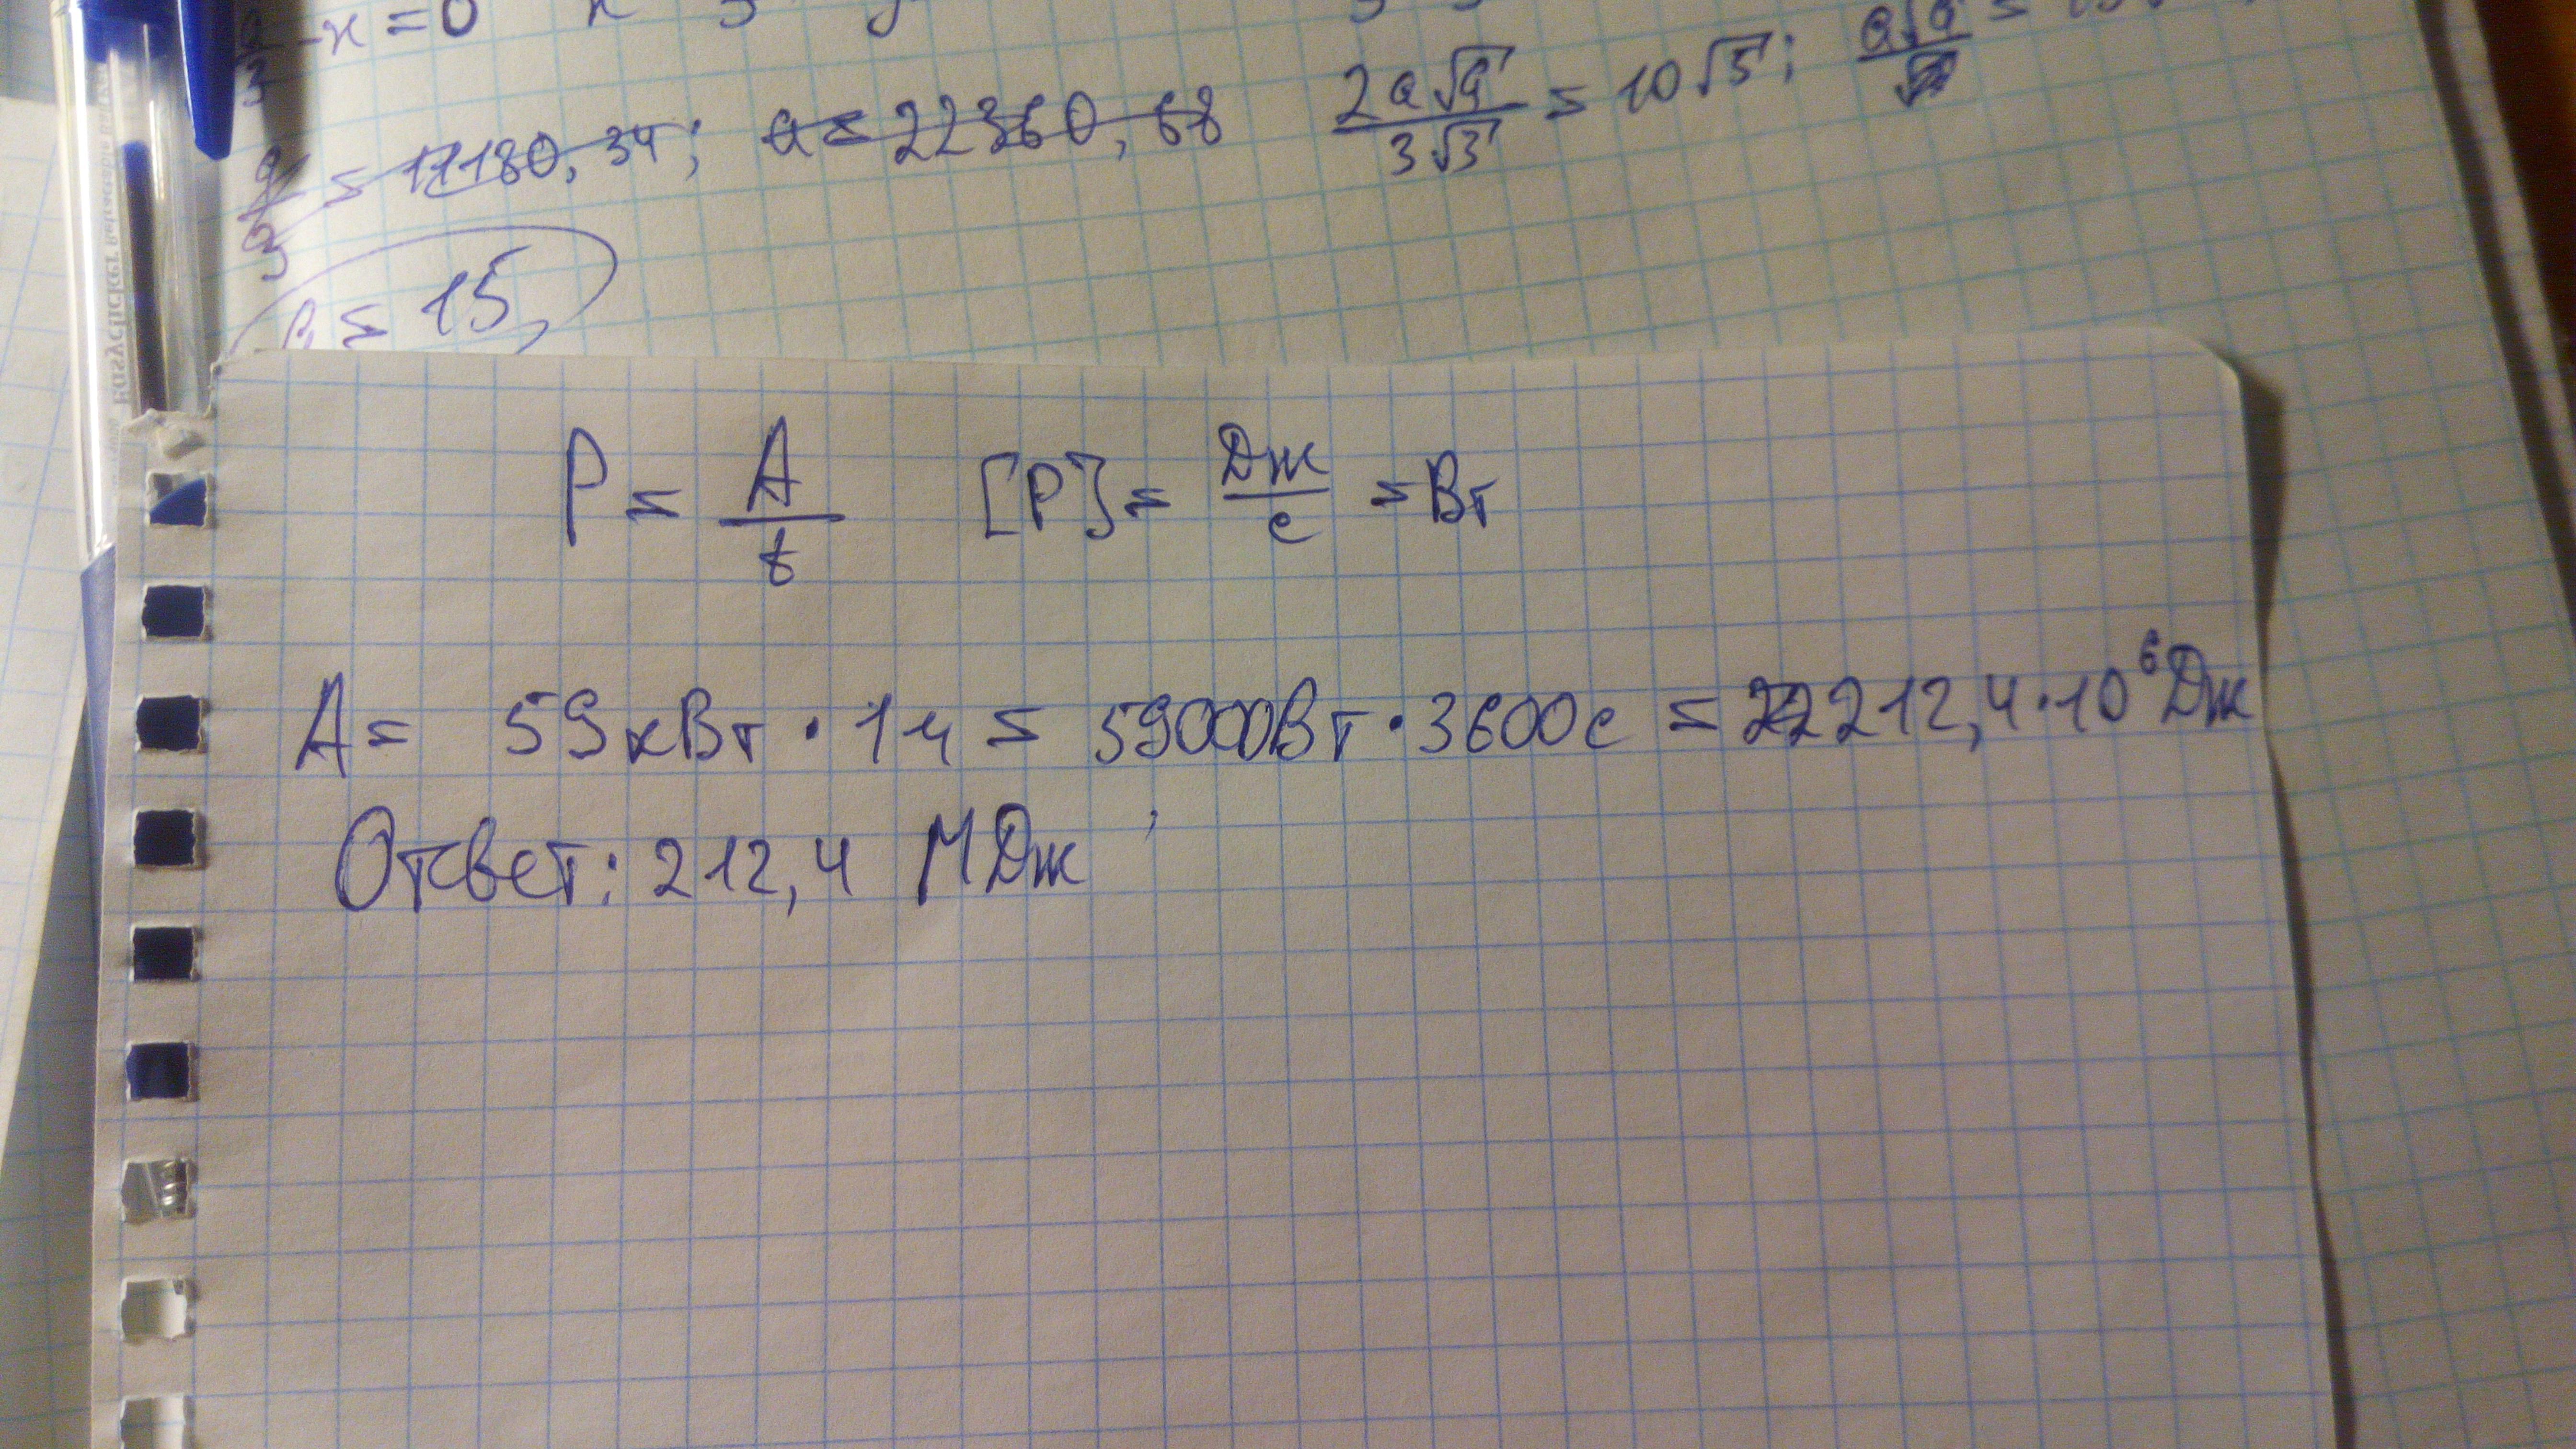 -x=0
= 11180,34; a = 22360,68 2a√a / 3√3 = 10√5;
= 15
P = A/t [P] = Дж/с = Вт
A = 59кВт · 1ч = 59000Вт · 3600с = 212,4·10⁶Дж
Ответ: 212,4 МДж